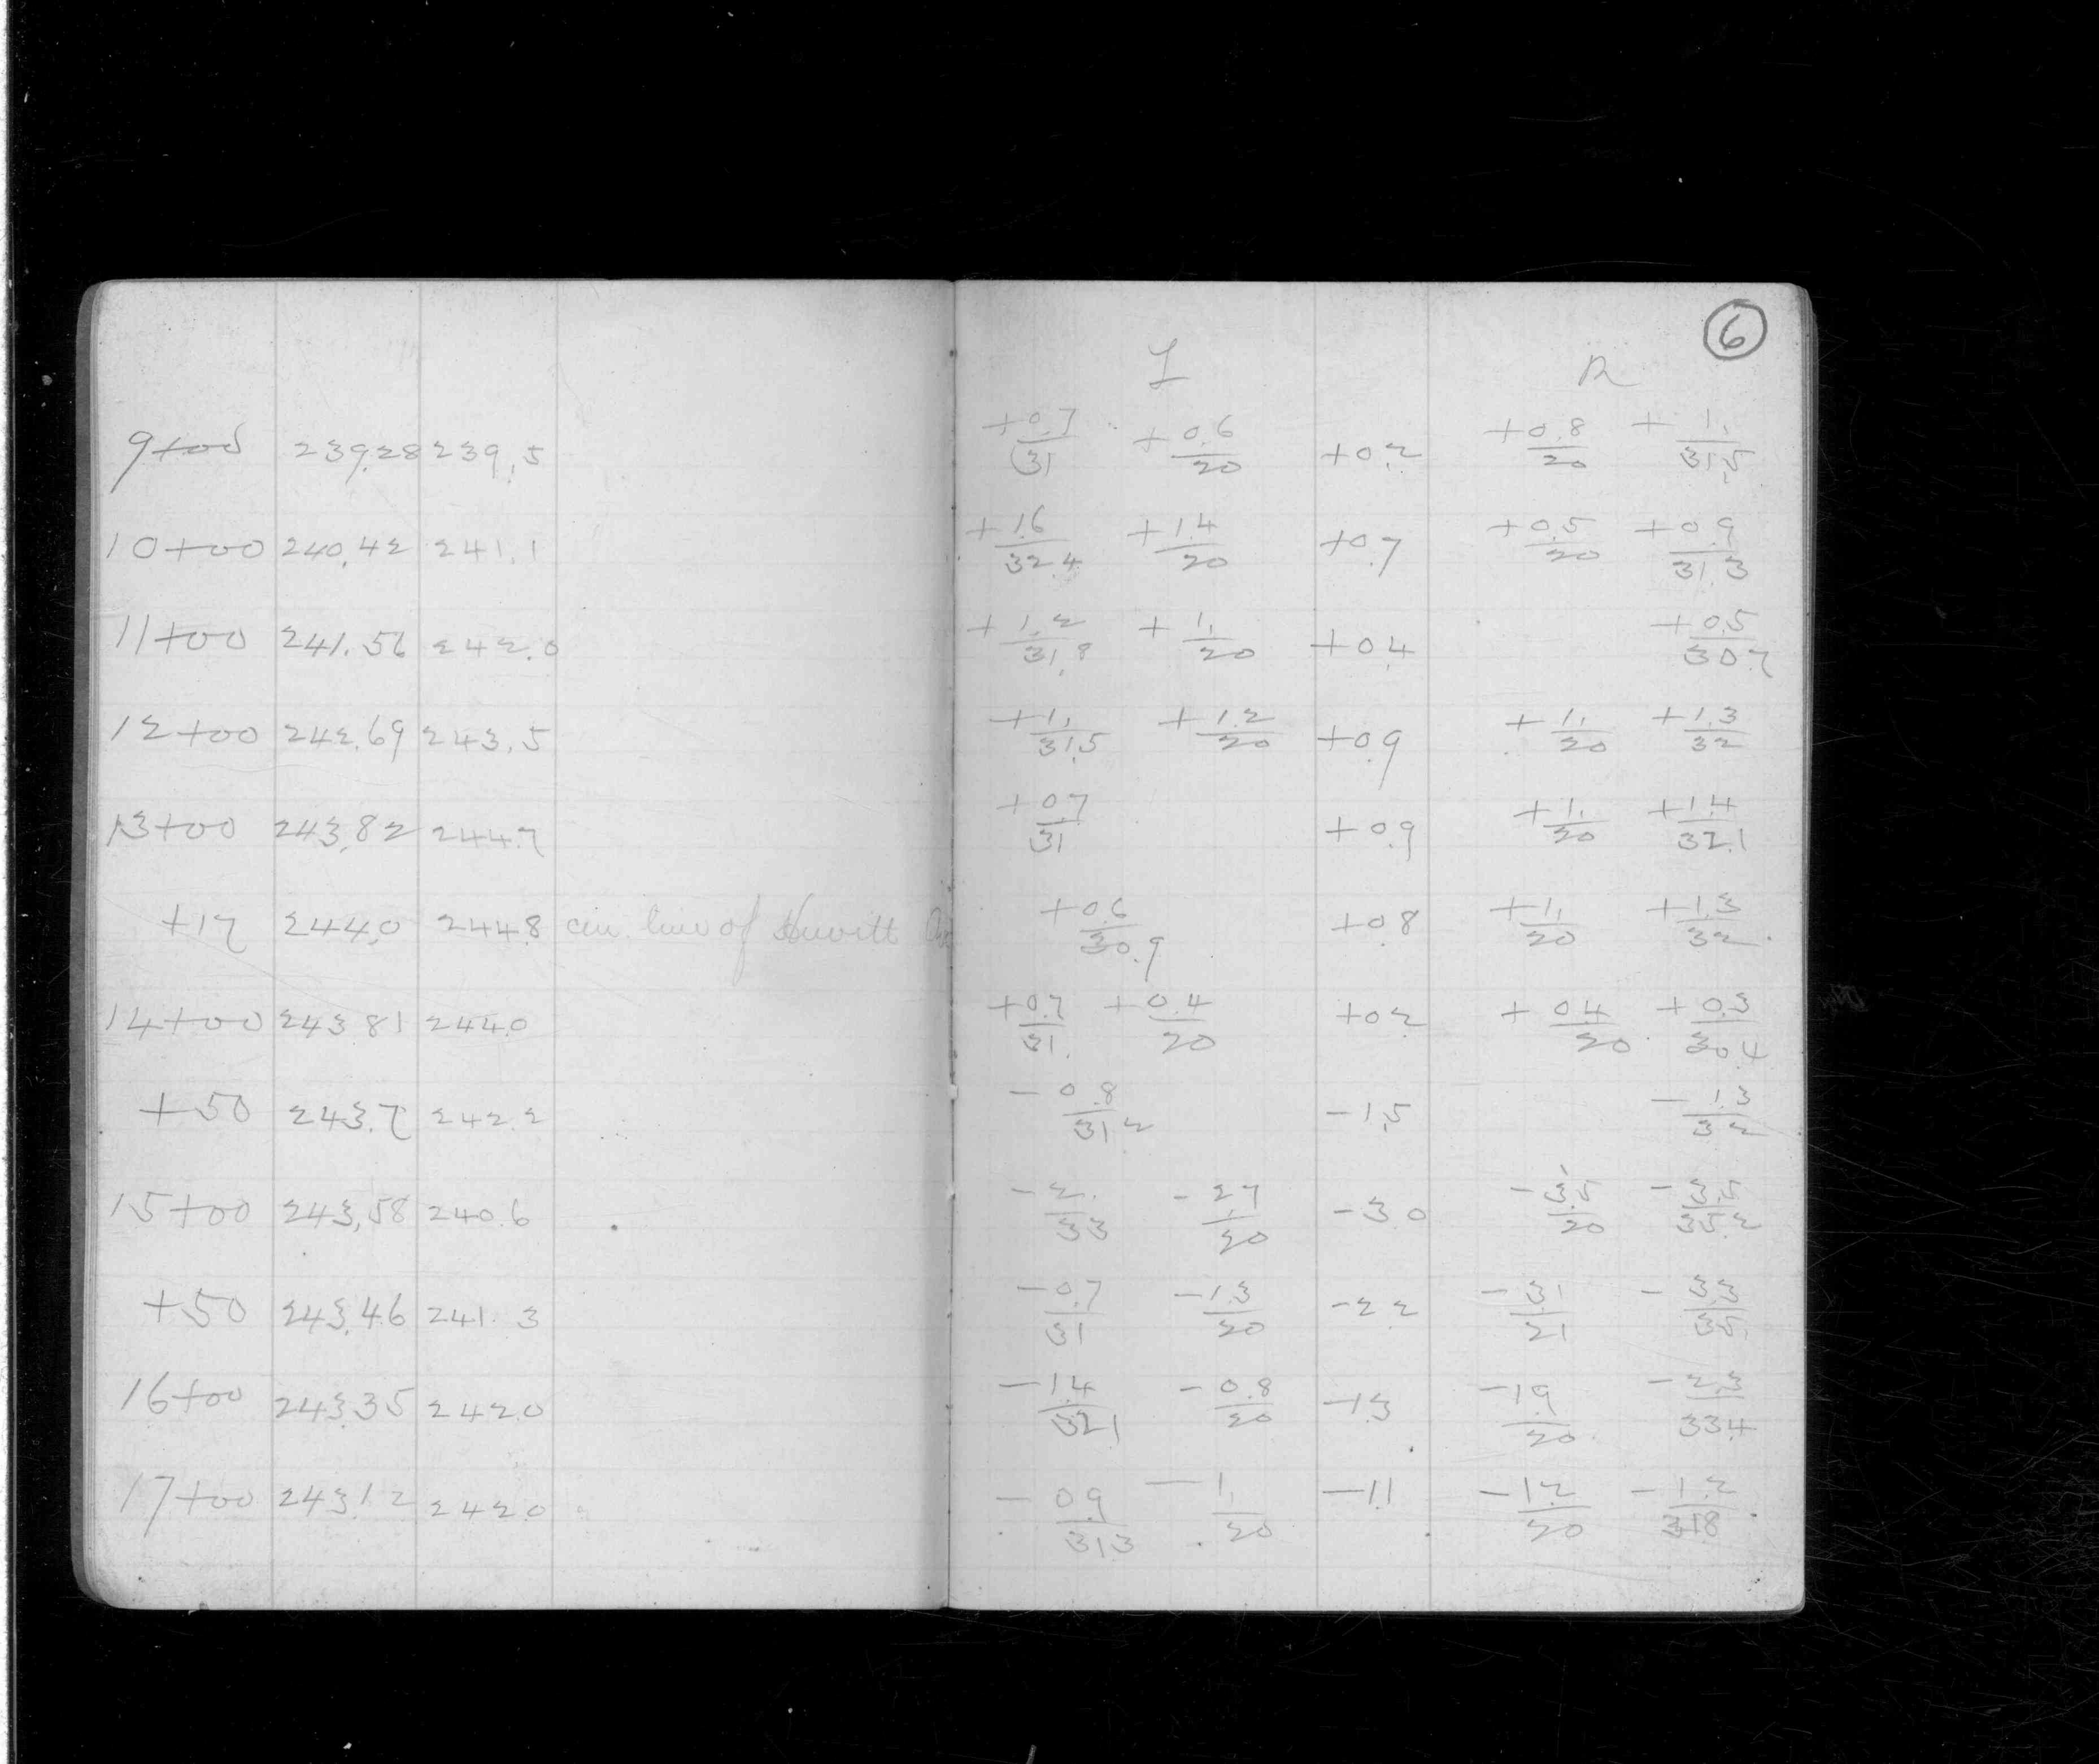 6
L R
9+00 239.28 239.5 +0.7/31 +0.6/20 +0.2 +0.8/20 +1./31.5
10+00 240.42 241.1 +1.6/32.4 +1.4/20 +0.7 +0.5/20 +0.9/31.3
11+00 241.56 242.0 +1.2/31.8 +1./20 +0.4 +0.5/30.7
12+00 242.69 243.5 +1./31.5 +1.2/20 +0.9 +1./20 +1.3/32
13+00 243.82 244.7 +0.7/31 +0.9 +1./20 +1.4/32.1
+17 244.0 244.8 cen. line of Hewitt Ave +0.6/30.9 +0.8 +1./20 +1.3/32
14+00 243.81 244.0 +0.7/31. +0.4/20 +0.2 +0.4/20 +0.3/30.4
+50 243.7 242.2 -0.8/31.2 -1.5 -1.3/32
15+00 243.58 240.6 -2./33 -2.7/20 -3.0 -3.5/20 -3.5/35.2
+50 243.46 241.3 -0.7/31 -1.3/20 -2.2 -3.1/21 -3.3/35.
16+00 243.35 242.0 -1.4/32.1 -0.8/20 -1.3 -1.9/20 -2.3/33.4
17+00 243.12 242.0 -0.9/31.3 -1./20 -1.1 -1.2/20 -1.2/31.8